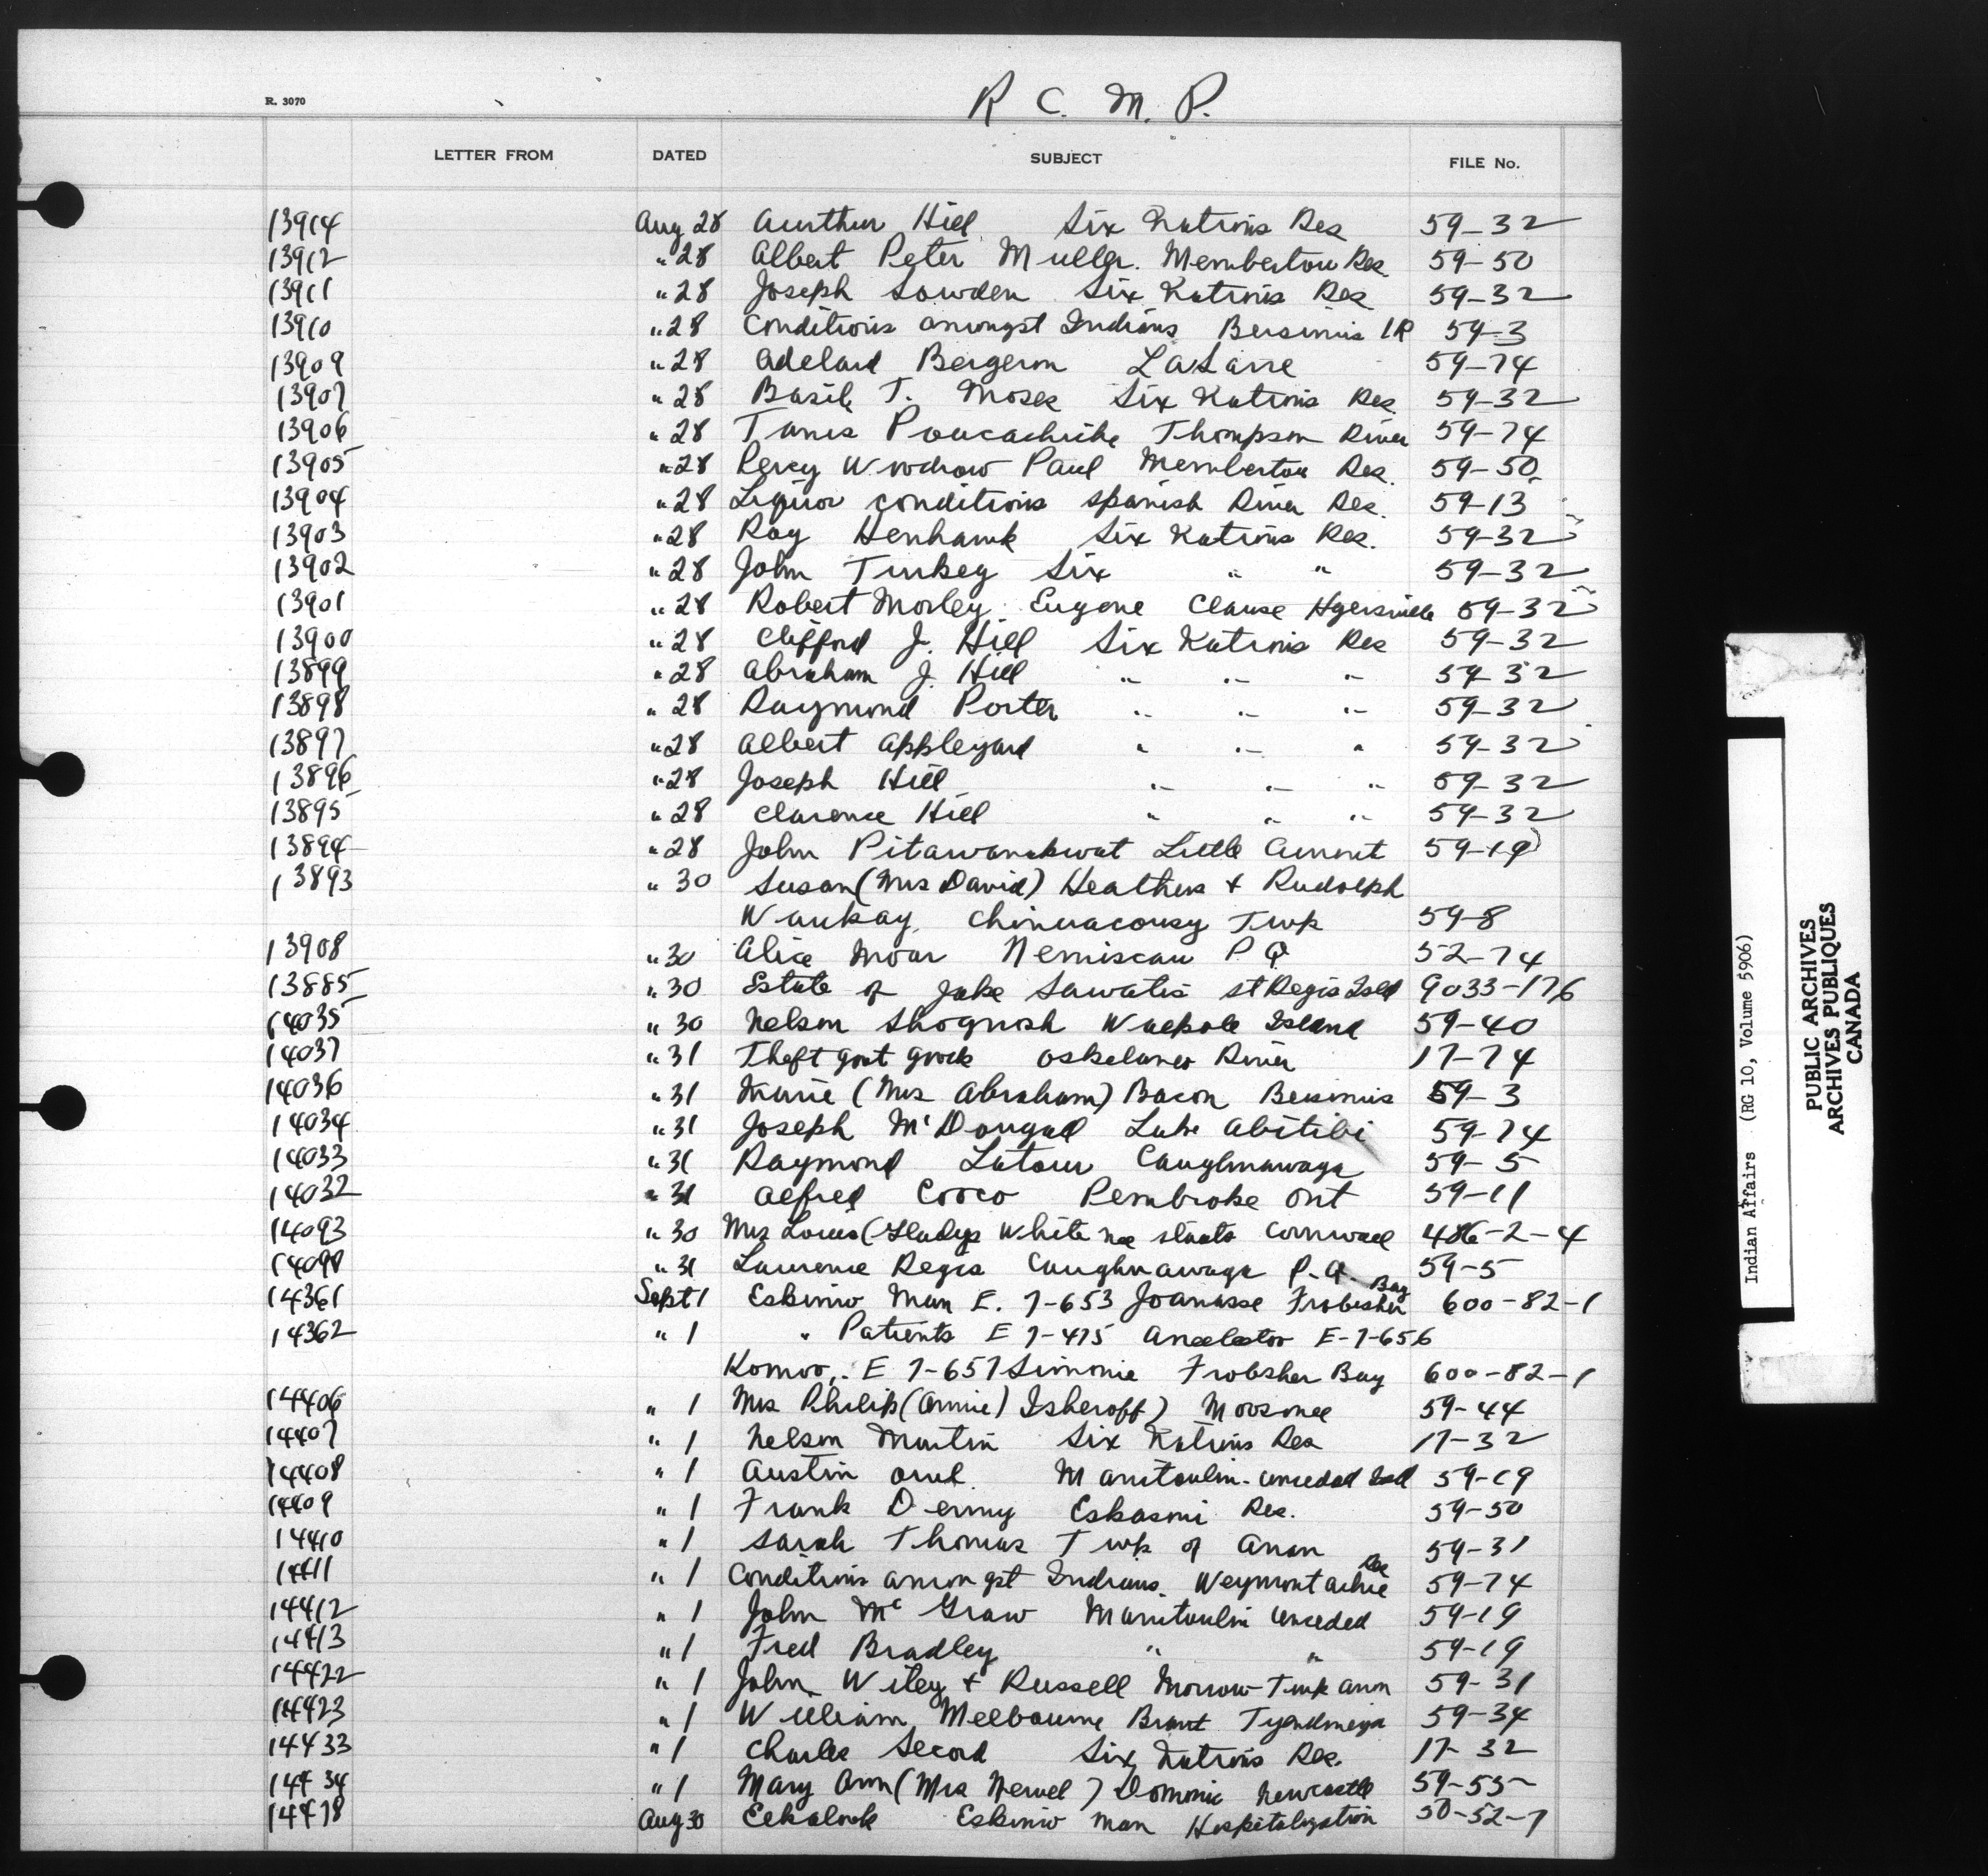 R. 3070
R C. M. P.
LETTER FROM DATED SUBJECT FILE No.
13914 Aug 28 Aurthur Hill Six Nations Res 59-32
13912 " 28 Albert Peter Muller. Memberton Res. 59-50
13911 " 28 Joseph Sowden Six Nations Res 59-32
13910 " 28 Conditions amongst Indians Bersimis IR 59-3
13909 " 28 Adelard Bergeron LaSarre 59-74
13907 " 28 Basil T. Moses Six Nations Res. 59-32
13906 " 28 Thompson River 59-74
13905 " 28 Percy Woodrow Paul Memberton Res. 59-50
13904 " 28 Liquor conditions Spanish River Res. 59-13
13903 " 28 Roy Henhawk Six Nations Res. 59-32
13902 " 28 John Turkey Six " " 59-32
13901 " 28 Robert Morley Eugene Clause Hagersville 59-32
13900 " 28 Clifford J. Hill Six Nations Res 59-32
13899 " 28 Abraham J. Hill " " " 59-32
13898 " 28 Raymond Porter " " " 59-32
13897 " 28 Albert Appleyard " " " 59-32
13896 " 28 Joseph Hill " " " 59-32
13895 " 28 Clarence Hill " " " 59-32
13894 " 28 John Pitawanakwat Little Current 59-19
13893 " 30 Susan (Mrs David) Heathers + Rudolph
Waukay, Chinuacousy Twp 59-8
13908 " 30 Alice Moar Nemiscau P Q 52-74
13885 " 30 Estate of Jake Sawatis St Regis Isld 9033-176
14035 " 30 Nelson Shognosh Walpole Island 59-40
14037 " 31 Theft govt goods Oskelaneo River 17-74
14036 " 31 Marie (Mrs Abraham) Bacon Bersimis 59-3
14034 " 31 Joseph McDougal Lake Abitibi 59-74
14033 " 31 Raymond Latour Caughnawaga 59-5
14032 " 31 Alfred Cooco Pembroke Ont 59-11
14093 " 30 Mrs Louis (Gladys White nee Staats Cornwall 486-2-4
" 31 Laurence Regis Caughnawaga P.Q. 59-5
14361 Sept 1 Eskimo Man E. 7-653 Joanasse Frobisher Bay 600-82-1
14362 " 1 " Patients E 7-475 E-7-656
Komoo,. E 7-657 Simonie Frobsher Bay 600-82-1
14406 " 1 Mrs Philip (Annie) Isheroff) Moosonee 59-44
14407 " 1 Nelson Martin Six Nations Res 17-32
14408 " 1 Austin Owl Manitoulin-unceded Isld 59-19
14409 " 1 Frank Denny Eskasoni Res. 59-50
14410 " 1 Sarah Thomas Twp of Anon 59-31
14411 " 1 Conditions amongst Indians. Weymontachie Res 59-74
14412 " 1 John McGraw Manitoulin unceded 59-19
14413 " 1 Fred Bradley " " 59-19
14422 " 1 John Wiley + Russell Morrow-Twp 59-31
14423 " 1 William Melbourne Brant Tyendinega 59-34
14433 " 1 Charles Secord Six Nations Res. 17-32
14434 " 1 Mary Ann (Mrs Newel) Dominic Newcastle 59-55
14478 Aug 30 Eekalook Eskimo man Hospitalyation 50-52-7
Indian Affairs (RG 10, Volume 5906)
PUBLIC ARCHIVES
ARCHIVES PUBLIQUES
CANADA